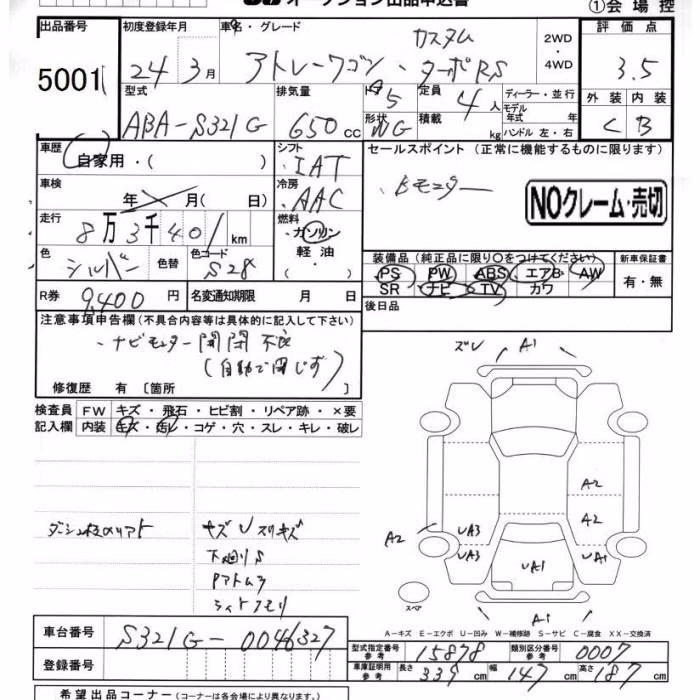 オークション出品申込書
①会場控
出品番号 5001
初度登録年月 24年3月
車名・グレード カスタム アトレーワゴン・ターボRS
2WD・4WD
評価点 3.5
型式 ABA-S321G
排気量 650cc
ドア 5
形状 WG
定員 4人
積載 kg
ディーラー・並行
モデル年式 年式
ハンドル 左・右
外装 C 内装 B
車歴 自家用・( )
シフト IAT
セールスポイント (正常に機能するものに限ります)
車検 年 月( 日)
冷房 AAC
Bモニター
NOクレーム・売切
走行 8万3千401km
燃料 ガソリン 軽油・( )
色 シルバー 色替
色コード S28
装備品 (純正品に限り○をつけてください)
PS PW ABS エアB AW
SR ナビ TV カワ
新車保証書 有・無
R券 9,400円
名変通知期限 月 日
後日品
注意事項申告欄 (不具合内容等は具体的に記入して下さい)
・ナビモニター開閉不良
(自動で閉じず)
修復歴 有 〔箇所
検査員記入欄
FW キズ・飛石・ヒビ割・リペア跡・×要
内装 キズ・汚レ・コゲ・穴・スレ・キレ・破レ
ズレ A1
A2
A2
A2 UA3
UA3 UA1 UA1
スペア
A1
キズUスリキズ
下廻りS
A-キズ E-エクボ U-凹み W-補修跡 S-サビ C-腐食 XX-交換済
車台番号 S321G-0046327
型式指定番号 参考 15878
類別区分番号 参考 0007
登録番号
車庫証明用 参考 長さ 339cm 幅 147cm 高さ 187cm
希望出品コーナー (コーナーは各会場により異なります。)